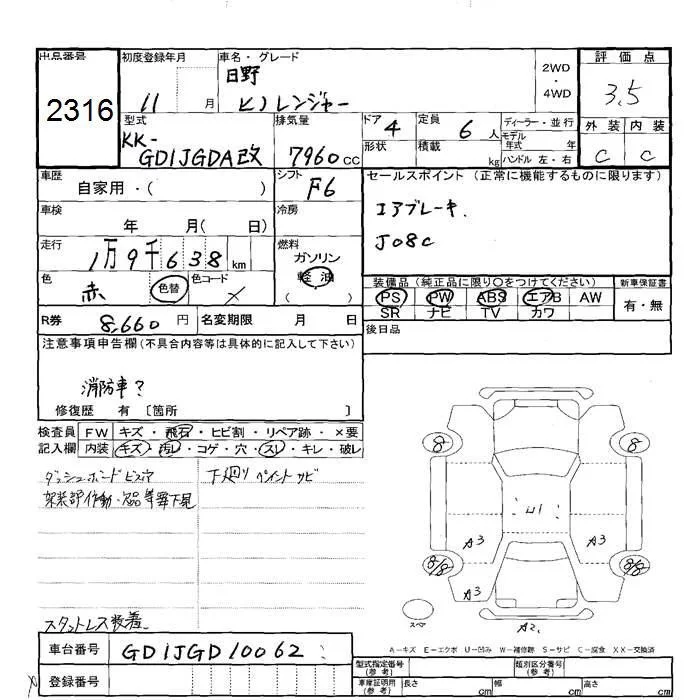 出品番号 初度登録年月 車名・グレード 評価点
2316 11 月 日野 2WD 3.5
ヒノレンジャー 4WD
型式 排気量 ドア 4 定員 6 人 ディーラー・並行 外装 内装
KK- モデル年式 年
GD1JGDA改 7960 cc 形状 積載 kg ハンドル 左・右 C C
車歴 自家用・( ) シフト F6 セールスポイント (正常に機能するものに限ります)
車検 年 月( 日) 冷房 エアブレーキ.
走行 1万9千638 km 燃料 ガソリン J08C
軽油
色 赤 色替 色コード 装備品 (純正品に限り○をつけてください) 新車保証書
PS PW ABS エアB AW 有・無
SR ナビ TV カワ
R券 8,660 円 名変期限 月 日 後日品
注意事項申告欄 (不具合内容等は具体的に記入して下さい)
消防車?
修復歴 有 〔箇所 〕
検査員 FW キズ・飛石・ヒビ割・リペア跡・×要
記入欄 内装 キズ・汚レ・コゲ・穴・スレ・キレ・破レ
ダッシュボードビス穴 下廻りペイントサビ
架装部作動・欠品等要下見
8 8
凹1
A3 A3
8/8 8/8
A3
スペア A2
スタットレス装着
A-キズ E-エクボ U-凹み W-補修跡 S-サビ C-腐食 XX-交換済
車台番号 GD1JGD10062
登録番号
型式指定番号 (参考) 類別区分番号 (参考)
車庫証明用 (参考) 長さ cm 幅 cm 高さ cm